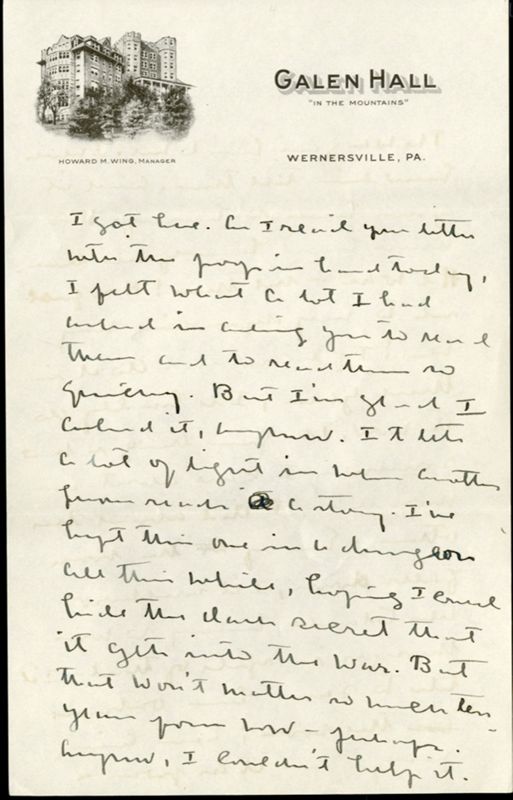 GALEN HALL
"IN THE MOUNTAINS"
HOWARD M. WING, MANAGER
WERNERSVILLE, PA.
I got here. As I read your letter
with the proofs in hand today,
I felt what a lot I had
asked in asking you to read
them and to read them so
quickly. But I'm glad I
asked it, anyhow. It lets
a lot of light in when another
person reads a story. I've
kept this one in a dungeon
all this while, hoping I could
hide the dark secret that
it gets into the war. But
that won't matter so much ten
years from now – perhaps.
Anyhow, I couldn't help it.